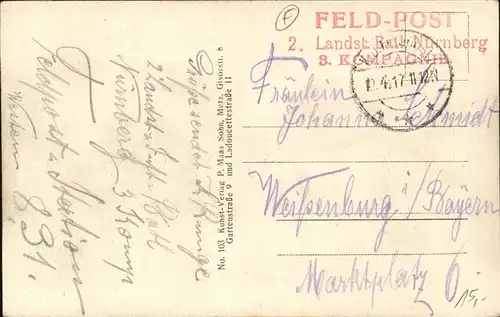 F
FELD-POST
2. Landst. Batl. Nürnberg
3. KOMPAGNIE
12.4.17. 11-12N
Fräulein
Johanna Schmidt
Weißenburg i/Bayern
Marktplatz 6
15,-
No. 103 Kunst-Verlag P. Maas Sohn, Metz, Gisorstr. 8
Gartenstraße 9 und Ladoucettestraße 11
Grüße sendet A. Runge
2 Landst. Inft. Batl
Nürnberg 3 Komp
Feldpost Station
Westen 831.